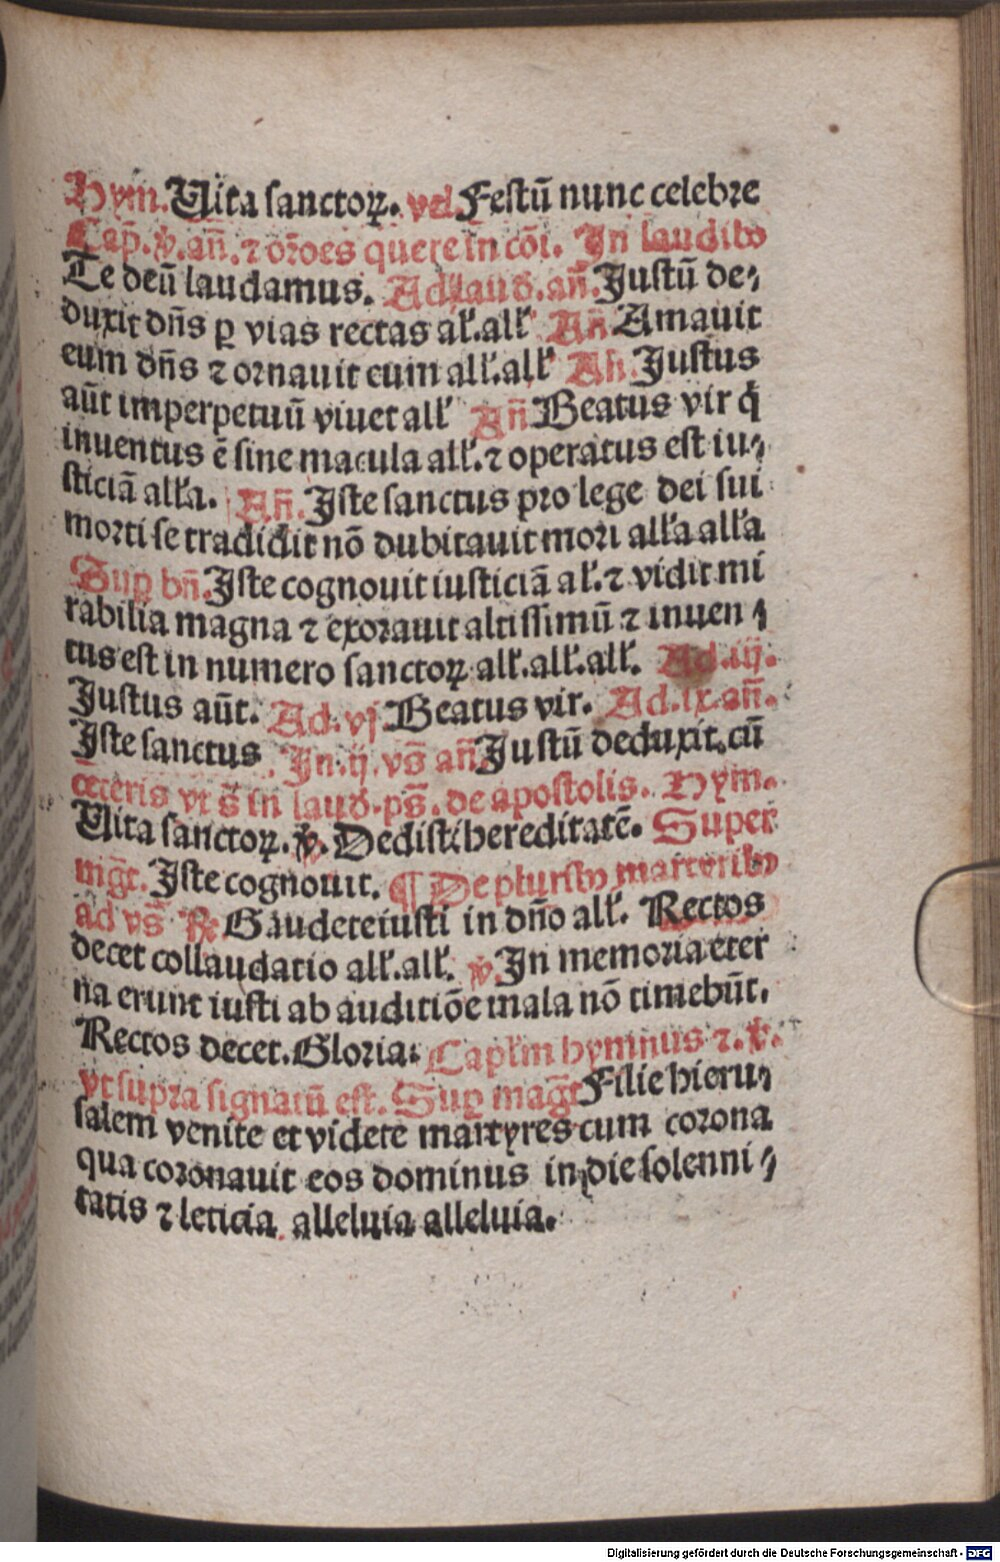 Hym. Uita sanctoꝝ. vel Festū nunc celebre
Cap̄. ꝟ. an̄. ⁊ or̄oes quere in cōi. In laudibꝰ
Te deū laudamus. Ad laud. an̄. Justū de⸗
duxit dn̄s ꝑ vias rectas al'. all' An̄ Amauit
eum dn̄s ⁊ ornauit eum all'. all' An̄. Justus
aūt imperpetuū viuet all' An̄ Beatus vir q̄
inuentus ē sine macula all'. ⁊ operatus est iu⸗
sticiā all'a. An̄. Iste sanctus pro lege dei sui
morti se tradidit nō dubitauit mori all'a all'a
Suꝑ bn̄. Iste cognouit iusticiā al'. ⁊ vidit mi
rabilia magna ⁊ exorauit altissimū ⁊ inuen⸗
tus est in numero sanctoꝝ all'. all'. all'. Ad. iij.
Justus aūt. Ad. vj Beatus vir. Ad. ix. an̄.
Iste sanctus. In. ij. vs̄ an̄ Justū deduxit. cū
ceteris vt s̄ in laud. ps̄. de apostolis. Hym.
Uita sanctoꝝ. ꝟ. Dedisti hereditatē. Super
mḡt. Iste cognouit. ¶ De plurībꝰ martyribꝰ
ad vs̄ ℞ Gaudete iusti in dn̄o all'. Rectos
decet collaudatio all'. all'. ꝟ. In memoria eter
na erunt iusti ab auditiōe mala nō timebūt.
Rectos decet. Gloria: Cap̄l'm hymnus ⁊. ꝟ.
vt supra signatū est. Suꝑ maḡt Filie hieru⸗
salem venite et videte martyres cum corona
qua coronauit eos dominus in die solenni⸗
tatis ⁊ leticia. alleluia alleluia.
Digitalisierung gefördert durch die Deutsche Forschungsgemeinschaft - DFG